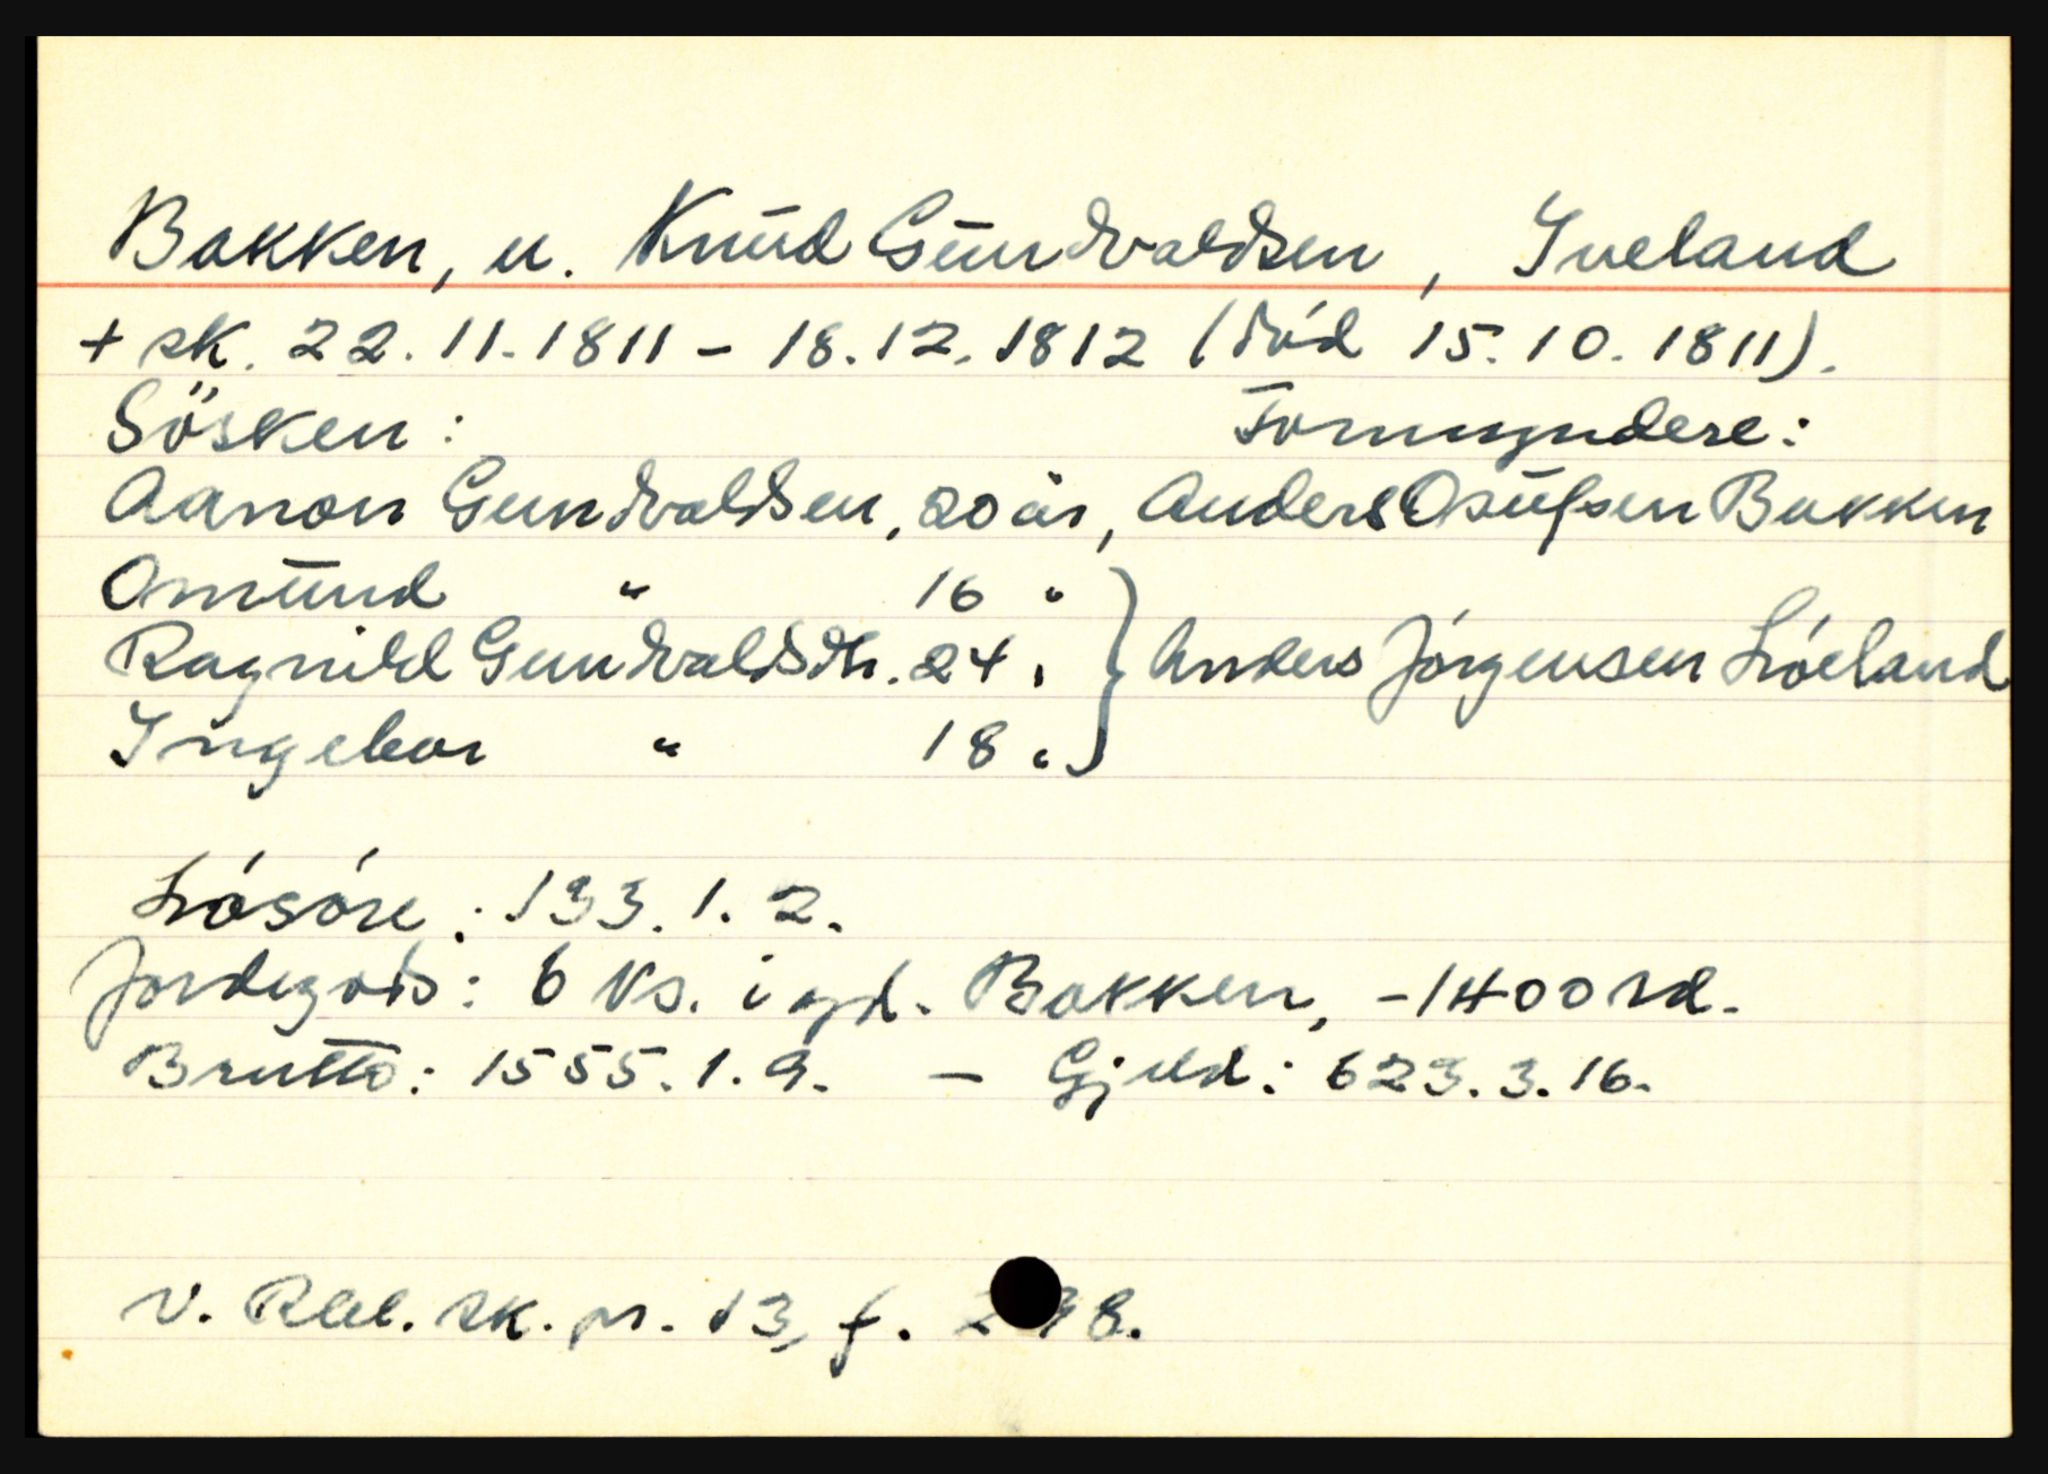 Bakken, u. Knud Gundvaldsen, Iveland
+ sk. 22.11.1811 - 18.12.1812 (död 15.10.1811).
Sösken: Formyndere:
Aanon Gundvaldsen, 20 år, Anders Osulfsen Bakken
Omund " 16 "
Ragnild Gundvaldsdtr. 24 " } Anders Jórgensen Lóeland
Ingebor " 18 "
Lósóre: 133.1.2.
Jordegods: 6 ks. i gd. Bakken, -1400 rd.
Brutto: 1555.1.9. - Gjeld: 623.3.16.
V. Rbl. sk. pr. 13, f. 8.